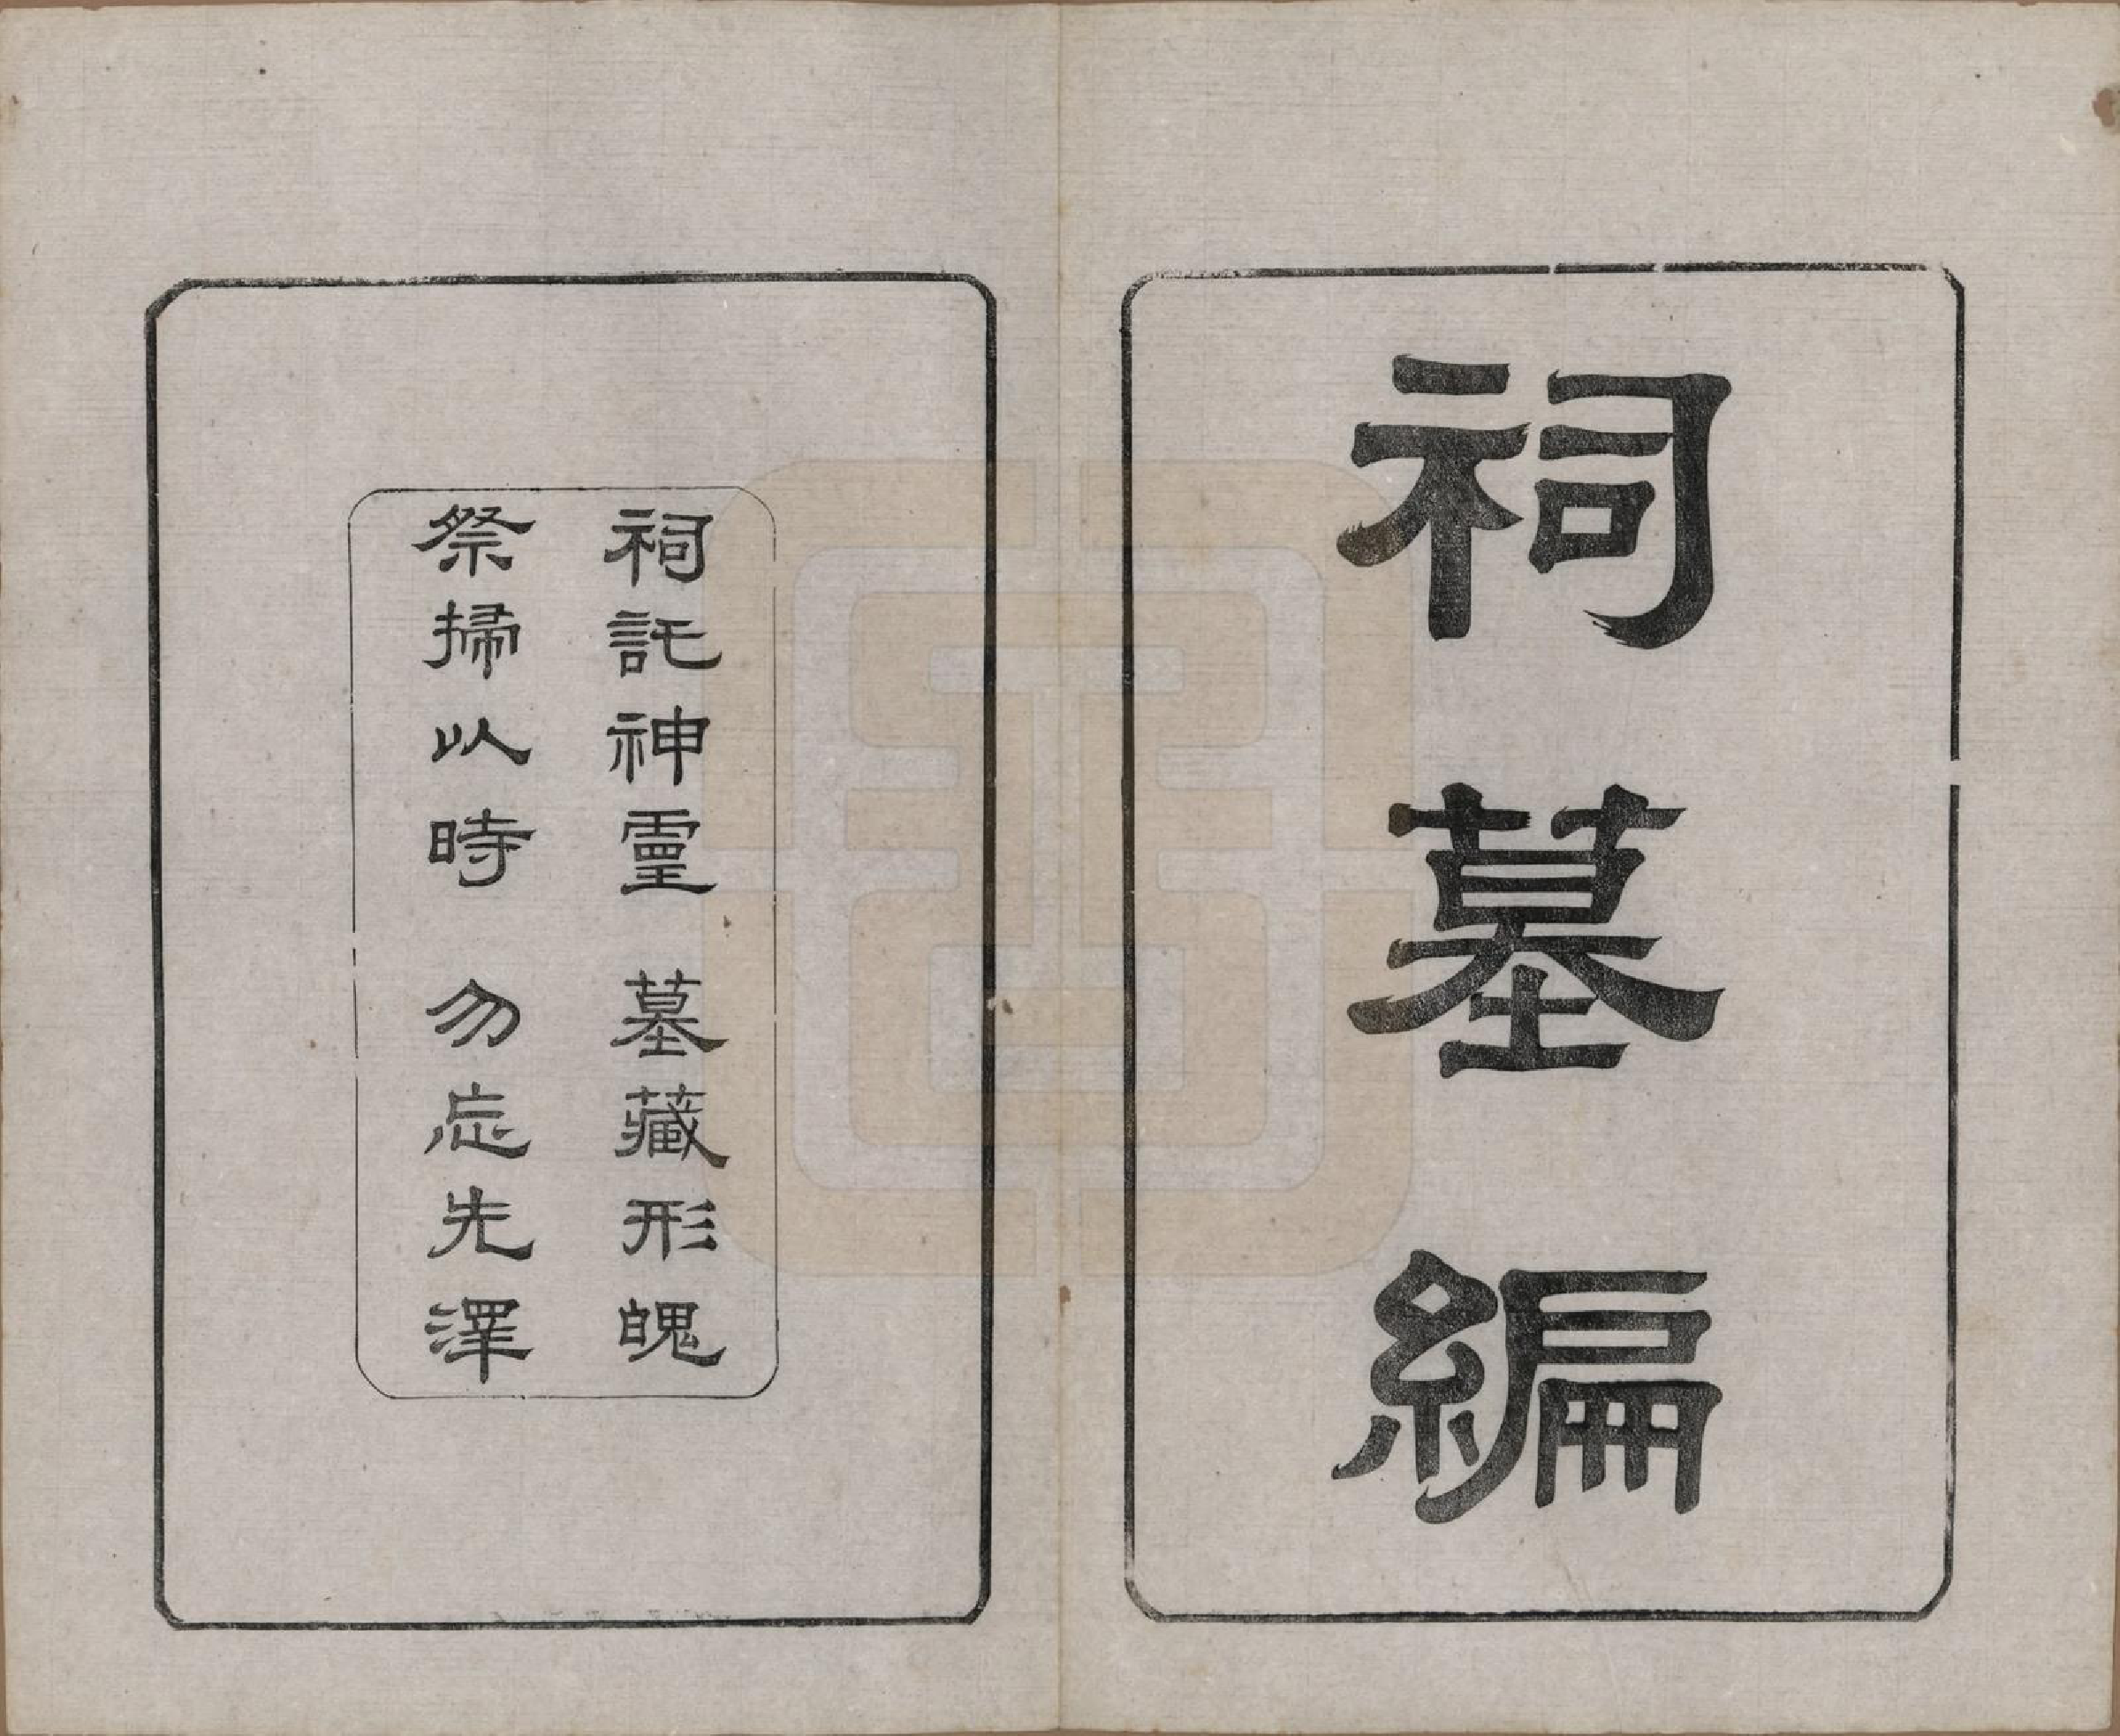 祠墓編
祠託神靈 墓藏形魄
祭掃以時 勿忘先澤